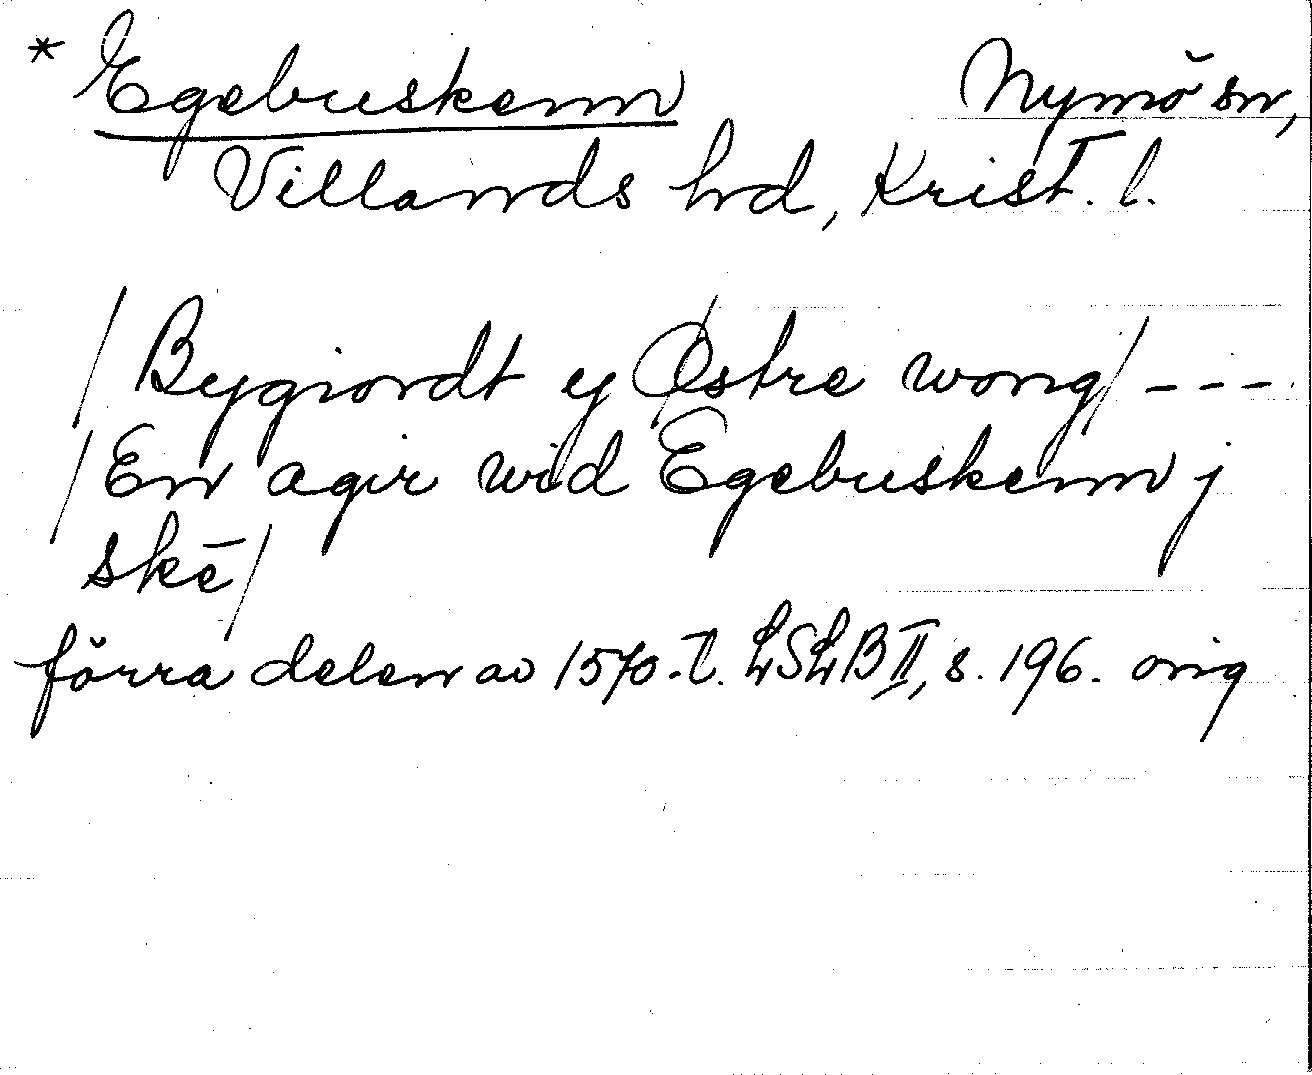 * Egebuskenn Nymö sn,
Villands hrd, Krist. l.
/Bygiordt y Østre wong/ ---
/En agir wid Egebuskenn j
skē/
förra delen av 1570-t. LSLB II, s. 196. orig